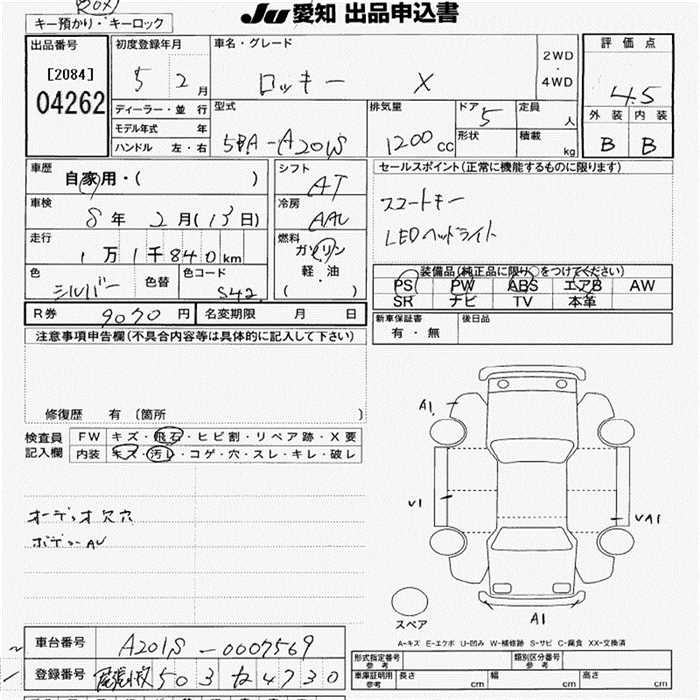 JU愛知 出品申込書
キー預かり・キーロック
出品番号
[2084]
04262
初度登録年月
5 2月
ディーラー・並行
モデル年式 年
ハンドル 左・右
車名・グレード
ロッキー X
2WD
・
4WD
型式
5BA-A201S
排気量
1200cc
ドア 5
形状
定員 人
積載 kg
評価点
4.5
外装 内装
B B
車歴
自家用・( )
車検
8年 2月(13日)
走行
1万1千840km
色
シルバー
色替
色コード
S42
シフト
AT
冷房
AAC
燃料
ガソリン
軽・油
( )
セールスポイント(正常に機能するものに限ります)
スマートキー
LEDヘッドライト
装備品(純正品に限り○をつけてください)
PS PW ABS エアB AW
SR ナビ TV 本革
R券 9070円 名変期限 月 日
新車保証書
有・無
後日品
注意事項申告欄(不具合内容等は具体的に記入して下さい)
修復歴 有 〔箇所 〕
検査員
記入欄
FW キズ・飛石・ヒビ割・リペア跡・X要
内装 キズ・汚レ・コゲ・穴・スレ・キレ・破レ
オーディオ欠穴
ボデーAU
A1
U1
UA1
A1
スペア
A-キズ E-エクボ U-凹み W-補修跡 S-サビ C-腐食 XX-交換済
車台番号 A201S-0007569
登録番号 503 4730
形式指定番号
参考
類別区分番号
参考
車庫証明用
参考
長さ cm 幅 cm 高さ cm